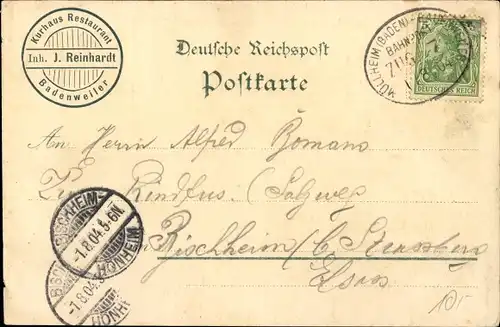 Kurhaus Restaurant
Inh. J. Reinhardt
Badenweiler
Deutsche Reichspost
Postkarte
MÜLLHEIM (BADEN)
BAHNPOST
ZUG
DEUTSCHES REICH
An Herrn Alfred Bomans
Bischheim b/ Strassburg
Elsass
BISCHHEIM-
-1.8.04.5-6N.
HÖNHEIM
-1.8.04.5
HÖNH